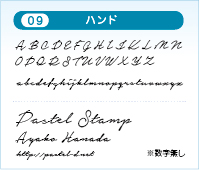 09 ハンド
ABCDEFGHIJKLMN
OPQRSTUVWXYZ
abcdefghijklmnopqrstuvwxyz
Pastel Stamp
Ayako Hamada
http://pastel-d.net
※数字無し